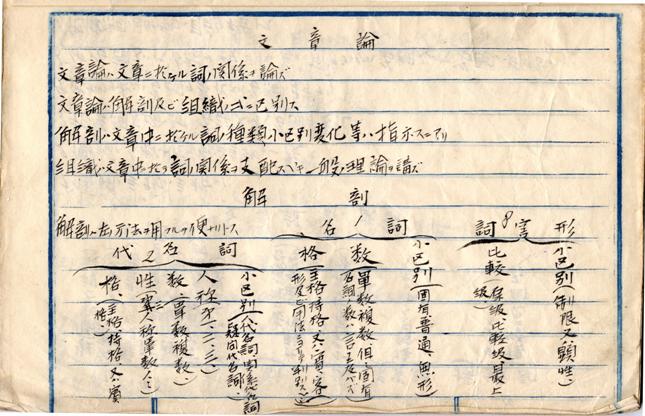 文章論
文章論ハ文章ニ於ケル詞ノ関係ヲ論ズ
文章論ハ解剖及ビ組織ノ二ニ区別ス
解剖ハ文章中ニ於ケル詞ノ種類小区別変化等ハ指示スニアリ
組織ハ文章中於テ詞ノ関係ヲ支配スベキ一般ノ理論ヲ講ズ
解剖
解剖ハ左ノ方法ヲ用フルヲ便ナリトス
形容詞
小区別(制限又ハ顕性、)
比較(原級、比較級、最上級)
名詞
小区別(固有普通、無形)
数(単数複数但シ固有名詞ノ数ハ言ニ及バズ)
格(主格持格又ハ賓、客)
代名詞
小区別(代名詞関係代名詞疑問代名詞、)
人称(一、二、三、)
数(単数複数、)
性(第三人称単数、)
格、(主格持格又ハ賓格、)